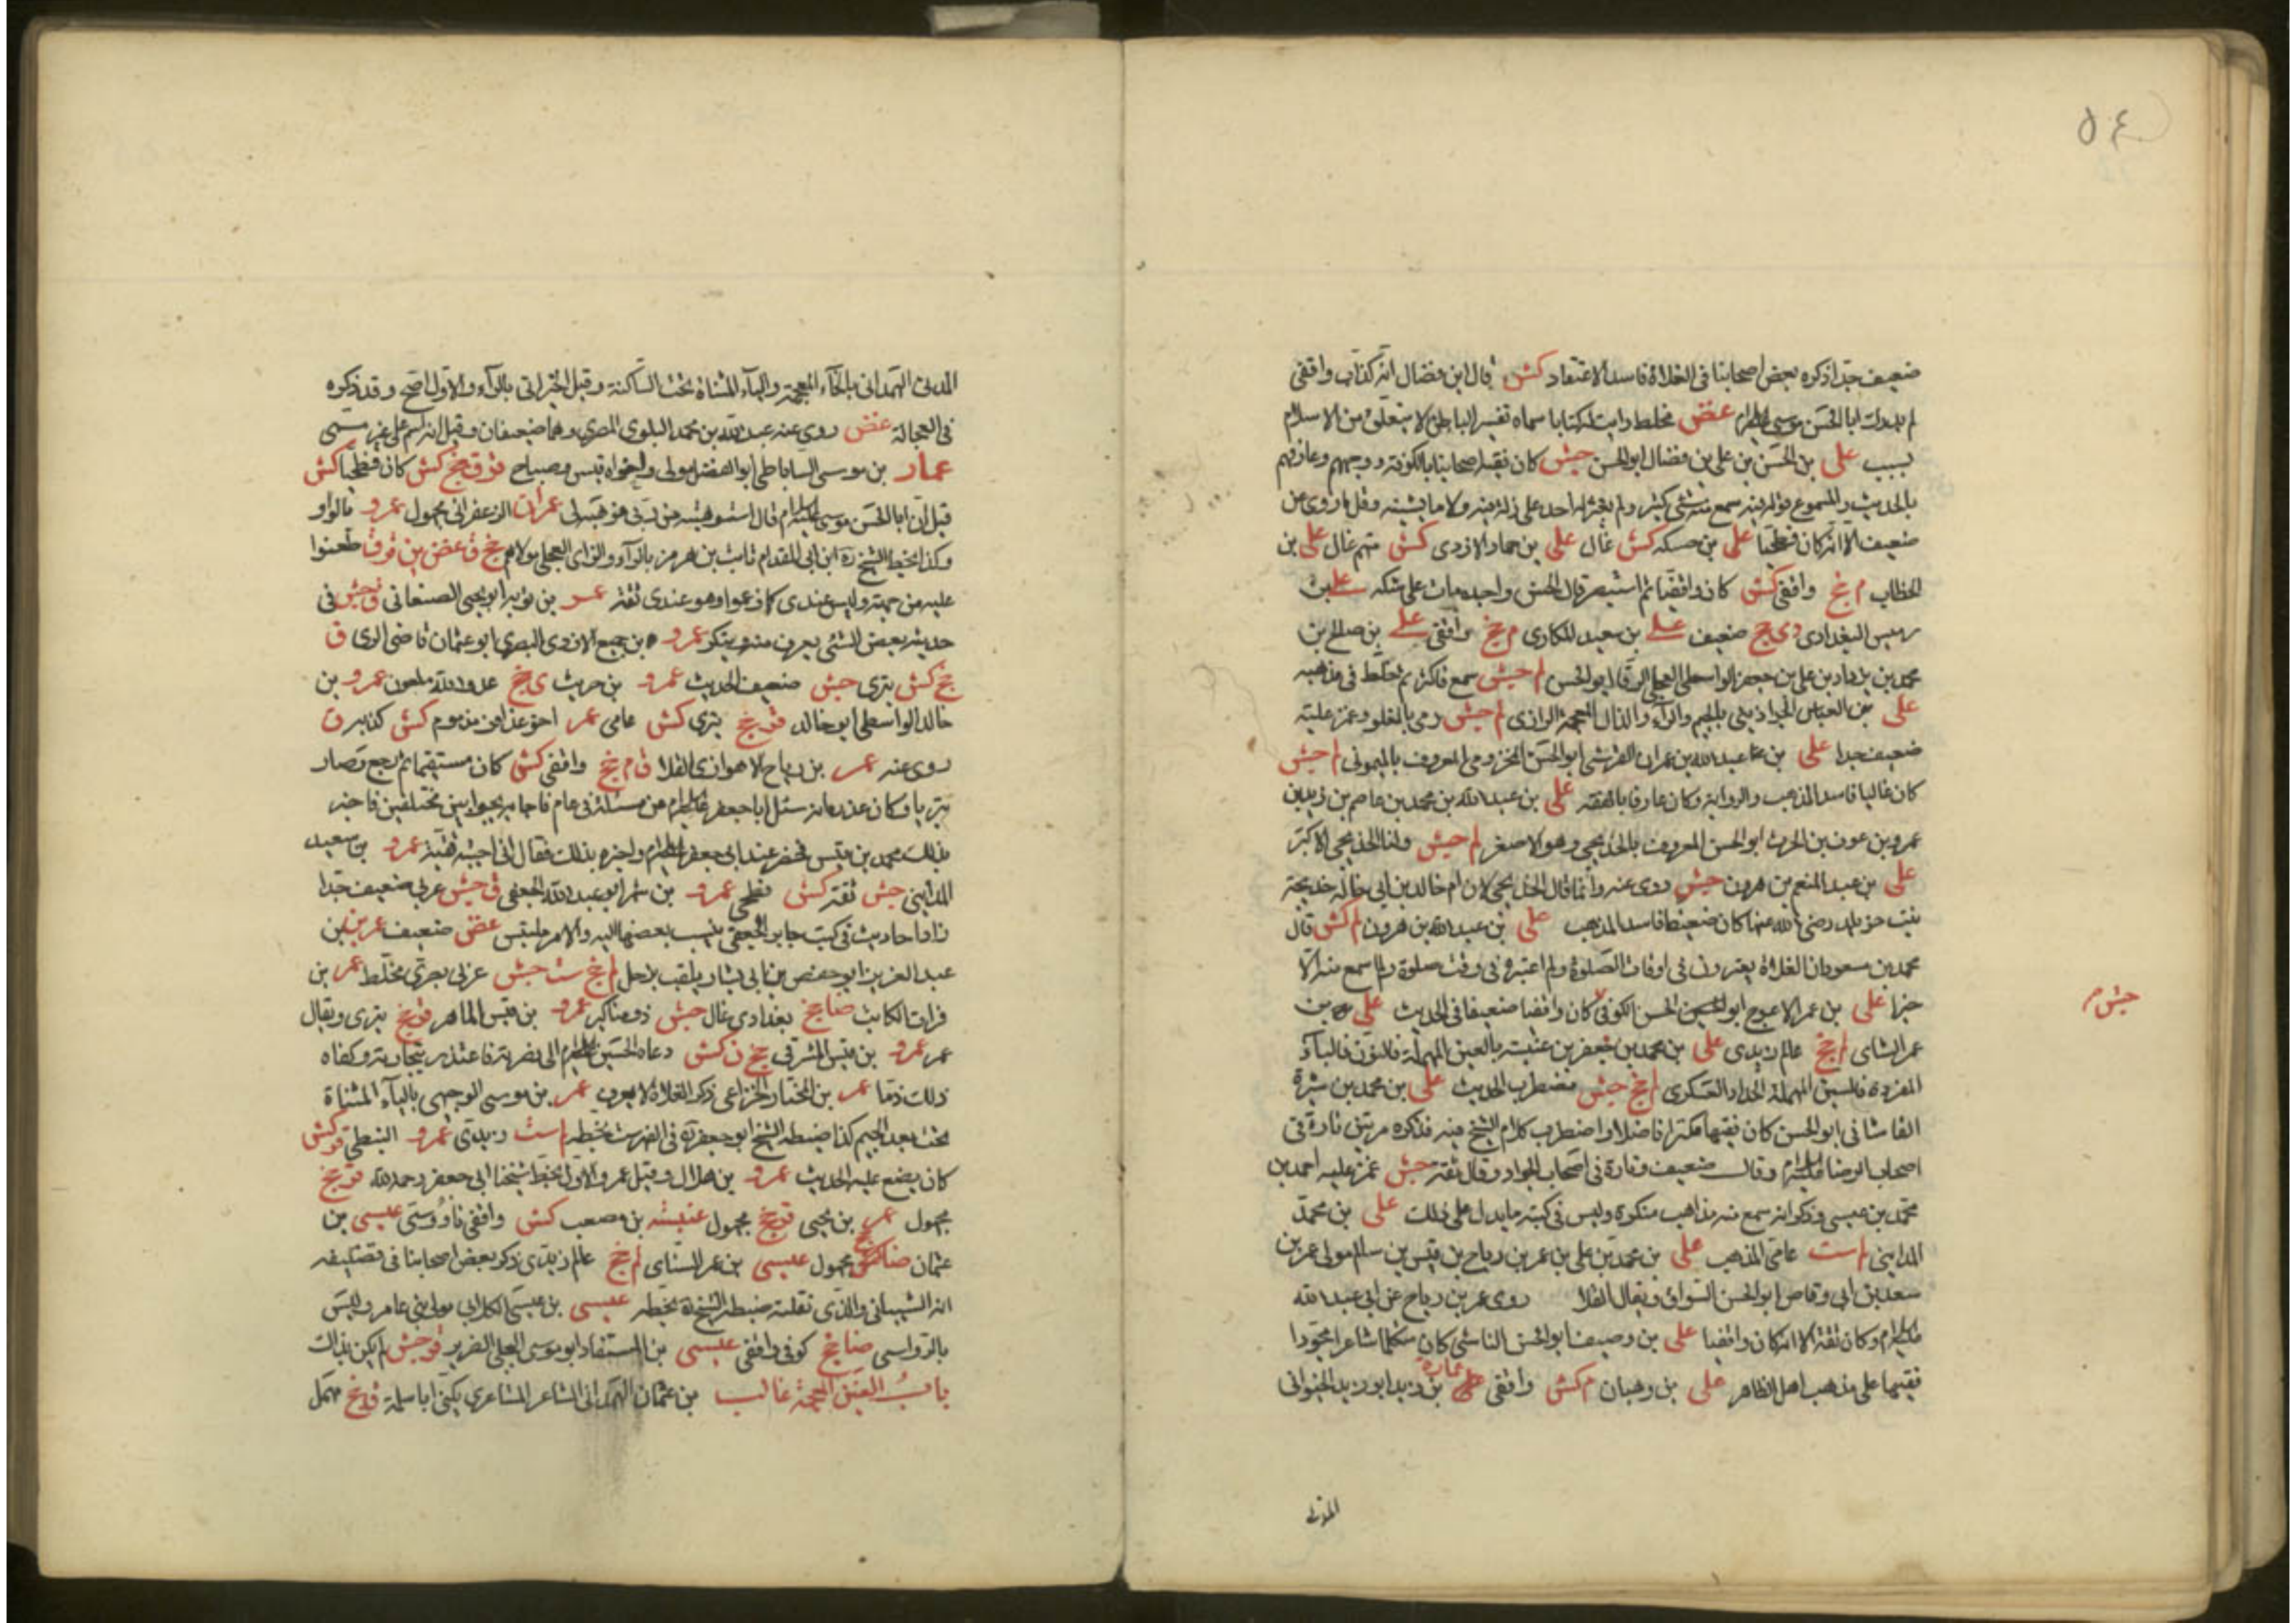 ٥٤
ضعيف جدا ذكره بعض اصحابنا فى الغلاة فاسد الاعتقاد كش قال ابن فضال انه كذاب واقفى
لم يدرك ابا الحسن موسى عليه السلام غض مخلط رايت له كتابا سماه تفسير الباطن لا يتعلق من الاسلام
بسبب على بن الحسن بن على بن فضال ابو الحسن جش كان فقيه اصحابنا بالكوفة ووجههم وعارفهم
بالحديث والمسموع قوله فيه سمع منه شئ كثير ولم يعثر له احد على زلة فيه ولا ما يشينه وقل ما روى عن
ضعيف الا انه كان فطحيا على بن حسكه كش غال على بن حماد الازدى كش متهم غال على بن
الخطاب م خج واقفى كش كان واقفيا ثم استبصر قال الحسن واحسبه مات على شكه على بن
رميس البغدادى دى خج ضعيف على بن سعيد المكارى م خج واقفى على بن صالح بن
محمد بن يزداد بن على بن جعفر الواسطى العجلى الرفا ابو الحسن لم جش سمع فاكثر ثم خلط فى مذهبه
على بن العباس الجراذينى بالجيم والراء والذال المعجمة الرازى لم جش رمى بالغلو وغمز عليه
ضعيف جدا على بن عبد الله بن عمران القرشى ابو الحسن المخزومى المعروف بالميمونى لم جش
كان غاليا فاسد المذهب والرواية وكان عارفا بالفقه على بن عبد الله بن محمد بن عاصم بن زيد بن
عمرو بن عوف بن الحرث ابو الحسن المعروف بالخديجى وهو الاصغر لم جش ولنا الخديجى الاكبر
على بن عبد المنعم بن هرون جش روى عنه وانما قال الخديجى لان ام خالد بن ابى هالة خديجة
بنت خويلد رضى الله عنها كان ضعيفا فاسد المذهب على بن عبد الله بن هرون لم كش قال
محمد بن مسعود ان الغلاة يعتبرون فى اوقات الصلوة ولم اعتبره فى وقت صلوة ولم اسمع منه الا
خيرا على بن عمر الاعرج ابو الحسن الكوفى كان واقفيا ضعيفا فى الحديث على بن
جش م
عمر الشاى لم خج عالم زيدى على بن محمد بن جعفر بن عنبسة بالعين المهملة فالنون فالباء
المفردة فالسين المهملة الحداد العسكرى لم خج جش مضطرب الحديث على بن محمد بن شيرة
القاشانى ابو الحسن كان فقيها مكثرا فاضلا واضطرب كلام الشيخ فيه فذكره مرتين تارة فى
اصحاب الرضا عليه السلام وقال ضعيف وتارة فى اصحاب الجواد وقال ثقة جش غمز عليه احمد بن
محمد بن عيسى وذكر انه سمع منه مذاهب منكرة وليس فى كتبه ما يدل على ذلك على بن محمد
المداينى لم ست عامى المذهب على بن محمد بن على بن عمر بن رباح بن قيس بن سالم مولى عمر بن
سعد بن ابى وقاص ابو الحسن السواق ويقال القلا روى عمر بن رباح عن ابى عبد الله
عليه السلام وكان ثقة الا انه كان واقفيا على بن وصيف ابو الحسن الناشى كان متكلما شاعرا مجودا
فقيها على مذهب اهل الظاهر على بن وهبان م كش واقفى عمارة بن زيد ابو زيد الخيوانى
المدنى
المدنى الهمدانى بالخاء المعجمة والياء المثناة تحت الساكنة وقيل الخيرانى بالراء والاول اصح وقد ذكره
فى العجالة غض روى عنه عبد الله بن محمد البلوى المصرى وهما ضعيفان وقيل انه اسم على غير مسمى
عمار بن موسى الساباطى ابو الفضل مولى واخواه قيس وصباح ق م خج كش كان فطحيا كش
قيل ان ابا الحسن موسى عليه السلام قال استوهبته من ربى فوهبه لى عمران الزعفرانى مجهول عمرو بالواو
وكذا بخط الشيخ ره ابن ابى المقدام ثابت بن هرمز بالراء والزاى العجلى مولاهم خج ق غض ين قر ق طعنوا
عليه من جهة وليس عندى كما زعموا وهو عندى ثقة عمر بن توبه ابو يحيى الصنعانى ق جش فى
حديثه بعض الشئ يعرف منه وينكر عمرو بن جميع الازدى البصرى ابو عثمان قاضى الرى ق
خج كش بترى جش ضعيف الحديث عمرو بن حريث ى خج عدو الله ملعون عمرو بن
خالد الواسطى ابو خالد قر خج بترى كش عامى عمر اخو عذافر مذموم كش كذبه ق
روى عنه عمر بن رباح الاهوازى القلا ق م خج واقفى كش كان مستقيما ثم رجع وصار
بتريا وكان عذره انه سئل ابا جعفر عليه السلام عن مسئلة فى عام فاجابه بجوابين مختلفين فاخبر
بذلك محمد بن قيس فحضر عند ابى جعفر عليه السلام واخبره بذلك فقال انى اجبته تقية عمرو بن سعيد
المداينى جش ثقة كش فطحى عمرو بن شمر ابو عبد الله الجعفى ق جش عربى ضعيف جدا
زاد احاديث فى كتب جابر الجعفى ينسب بعضها اليه والامر ملتبس غض ضعيف عمر بن
عبد العزيز ابو حفص بن ابى بشار يلقب بزحل لم خج ست جش عربى بصرى مخلط عمر بن
فرات الكاتب ضا خج بغدادى غال جش ذو مناكير عمرو بن قيس الماصر قر خج بترى ويقال
عمر عمرو بن قيس المشرقى خج ن كش دعاه الحسين عليه السلام الى نصرته فاعتذر بتجارته وكفاه
ذلك ذما عمر بن المختار الخزاعى ذكر الغلاة لا يعرف عمر بن موسى الوجيهى بالياء المثناة
تحت بعد الجيم كذا ضبطه الشيخ ابو جعفر ره فى الفهرست بخطه لم ست زيدى عمرو النبطى قر كش
كان يضع عليه الحديث عمرو بن هلال وقيل عمر والاول بخط شيخنا ابى جعفر رحمه الله قر خج
مجهول عمر بن يحيى قر خج مجهول عنبسة بن مصعب كش واقفى ناووسى عيسى بن
عثمان ضا خج مجهول عيسى بن عمر السناى لم خج عالم زيدى ذكر بعض اصحابنا فى تصنيفه
انه الشيبانى والذى نقلته ضبطه الشيخ ره بخطه عيسى بن عيسى الكلابى مولى بنى عامر وليس
بالرواسى ضا خج كوفى واقفى عيسى بن المستفاد ابو موسى البجلى الضرير قر جش لم يكن بذاك
باب الغين المعجمة غالب بن عثمان الهمدانى الشاعر المشاعرى يكنى ابا سلمة ق خج مهمل